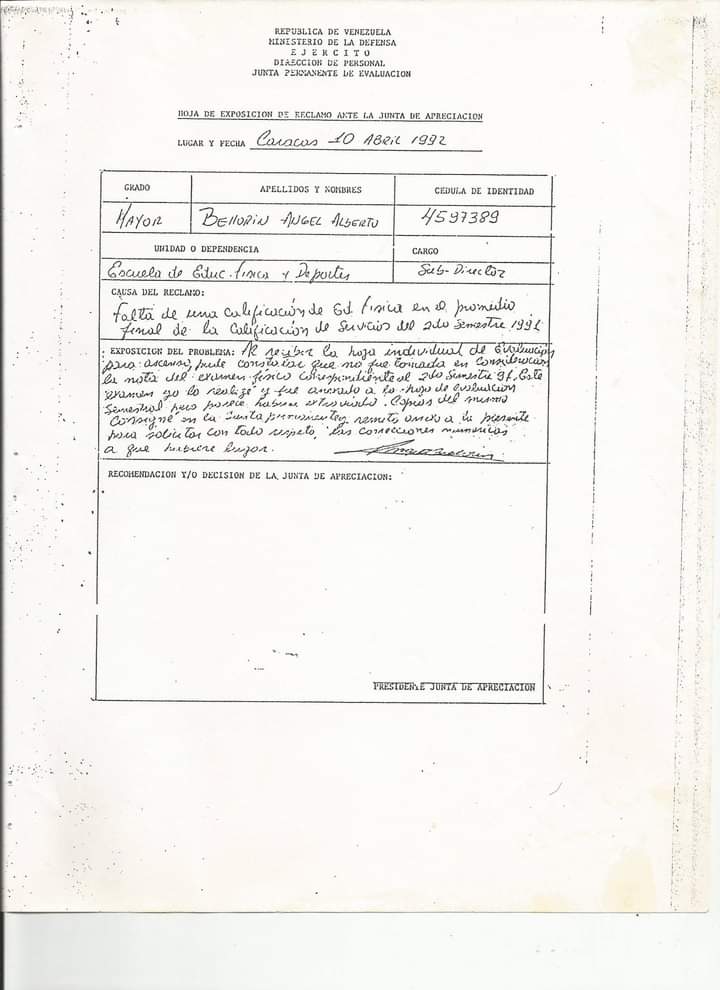 REPUBLICA DE VENEZUELA
MINISTERIO DE LA DEFENSA
E J E R C I T O
DIRECCION DE PERSONAL
JUNTA PERMANENTE DE EVALUACION
HOJA DE EXPOSICION DE RECLAMO ANTE LA JUNTA DE APRECIACION
LUGAR Y FECHA Caracas 10 Abril 1992
GRADO APELLIDOS Y NOMBRES CEDULA DE IDENTIDAD
MAYOR BELLORIN ANGEL ALBERTO 4597389
UNIDAD O DEPENDENCIA CARGO
Escuela de Educ. fisica y Deportes Sub-Director
CAUSA DEL RECLAMO:
falta de una calificación de Ed. fisica en el promedio
final de la Calificación de Servicios del 2do Semestre 1991
EXPOSICION DEL PROBLEMA: Al recibir la hoja individual de Evaluación
para ascenso, pude constatar que no fue tomada en Consideración
la nota del examen fisico correspondiente al 2do Semestre 91. Este
examen yo lo realizé y fue anexado a la hoja de evaluación
Semestral pero parece haberse extraviado. Copias del mismo
Consigné en la Junta permanente y remito anexo a la presente
para solicitar con todo respeto, las correcciones numéricas
a que hubiere lugar.
RECOMENDACION Y/O DECISION DE LA JUNTA DE APRECIACION:
PRESIDENTE JUNTA DE APRECIACION